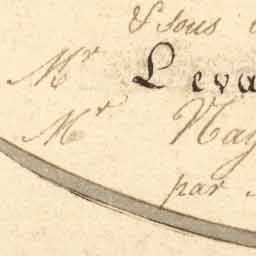 & sous
Mr Leva
Mr Nay
par